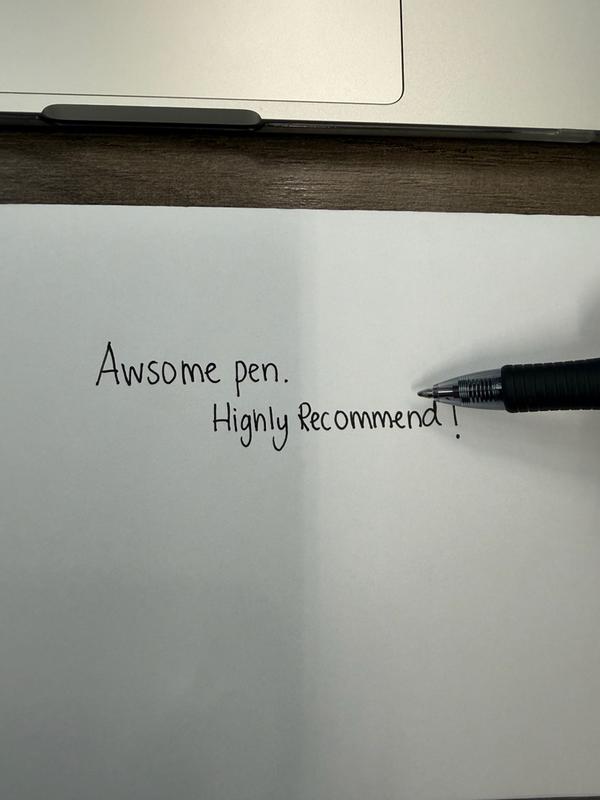 Awsome pen.
Highly Recommend!